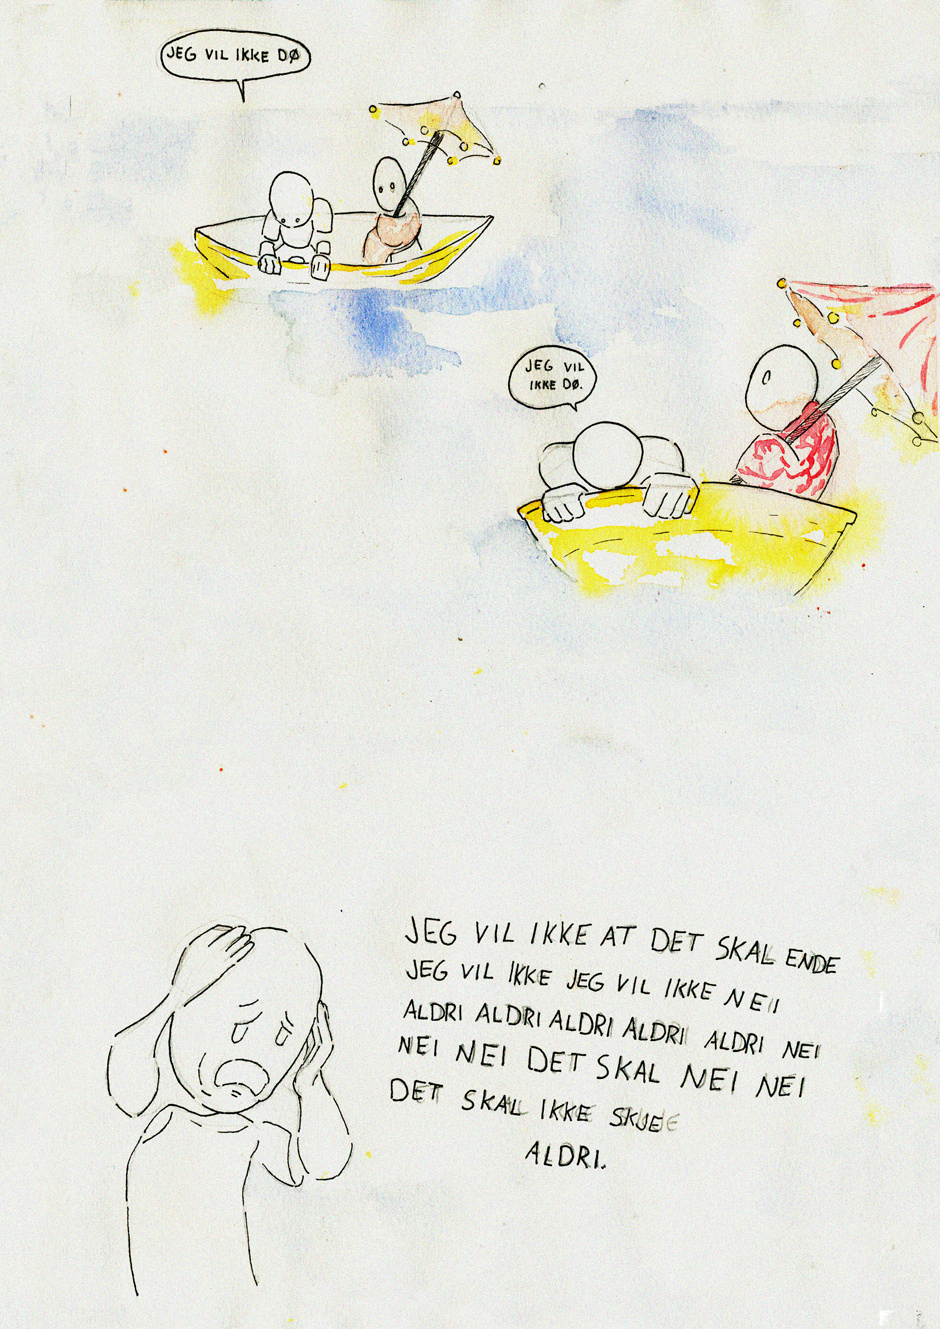 JEG VIL IKKE DØ
JEG VIL
IKKE DØ.
JEG VIL IKKE AT DET SKAL ENDE
JEG VIL IKKE JEG VIL IKKE NEI
ALDRI ALDRI ALDRI ALDRI ALDRI NEI
NEI NEI DET SKAL NEI NEI
DET SKAL IKKE SKJE
ALDRI.